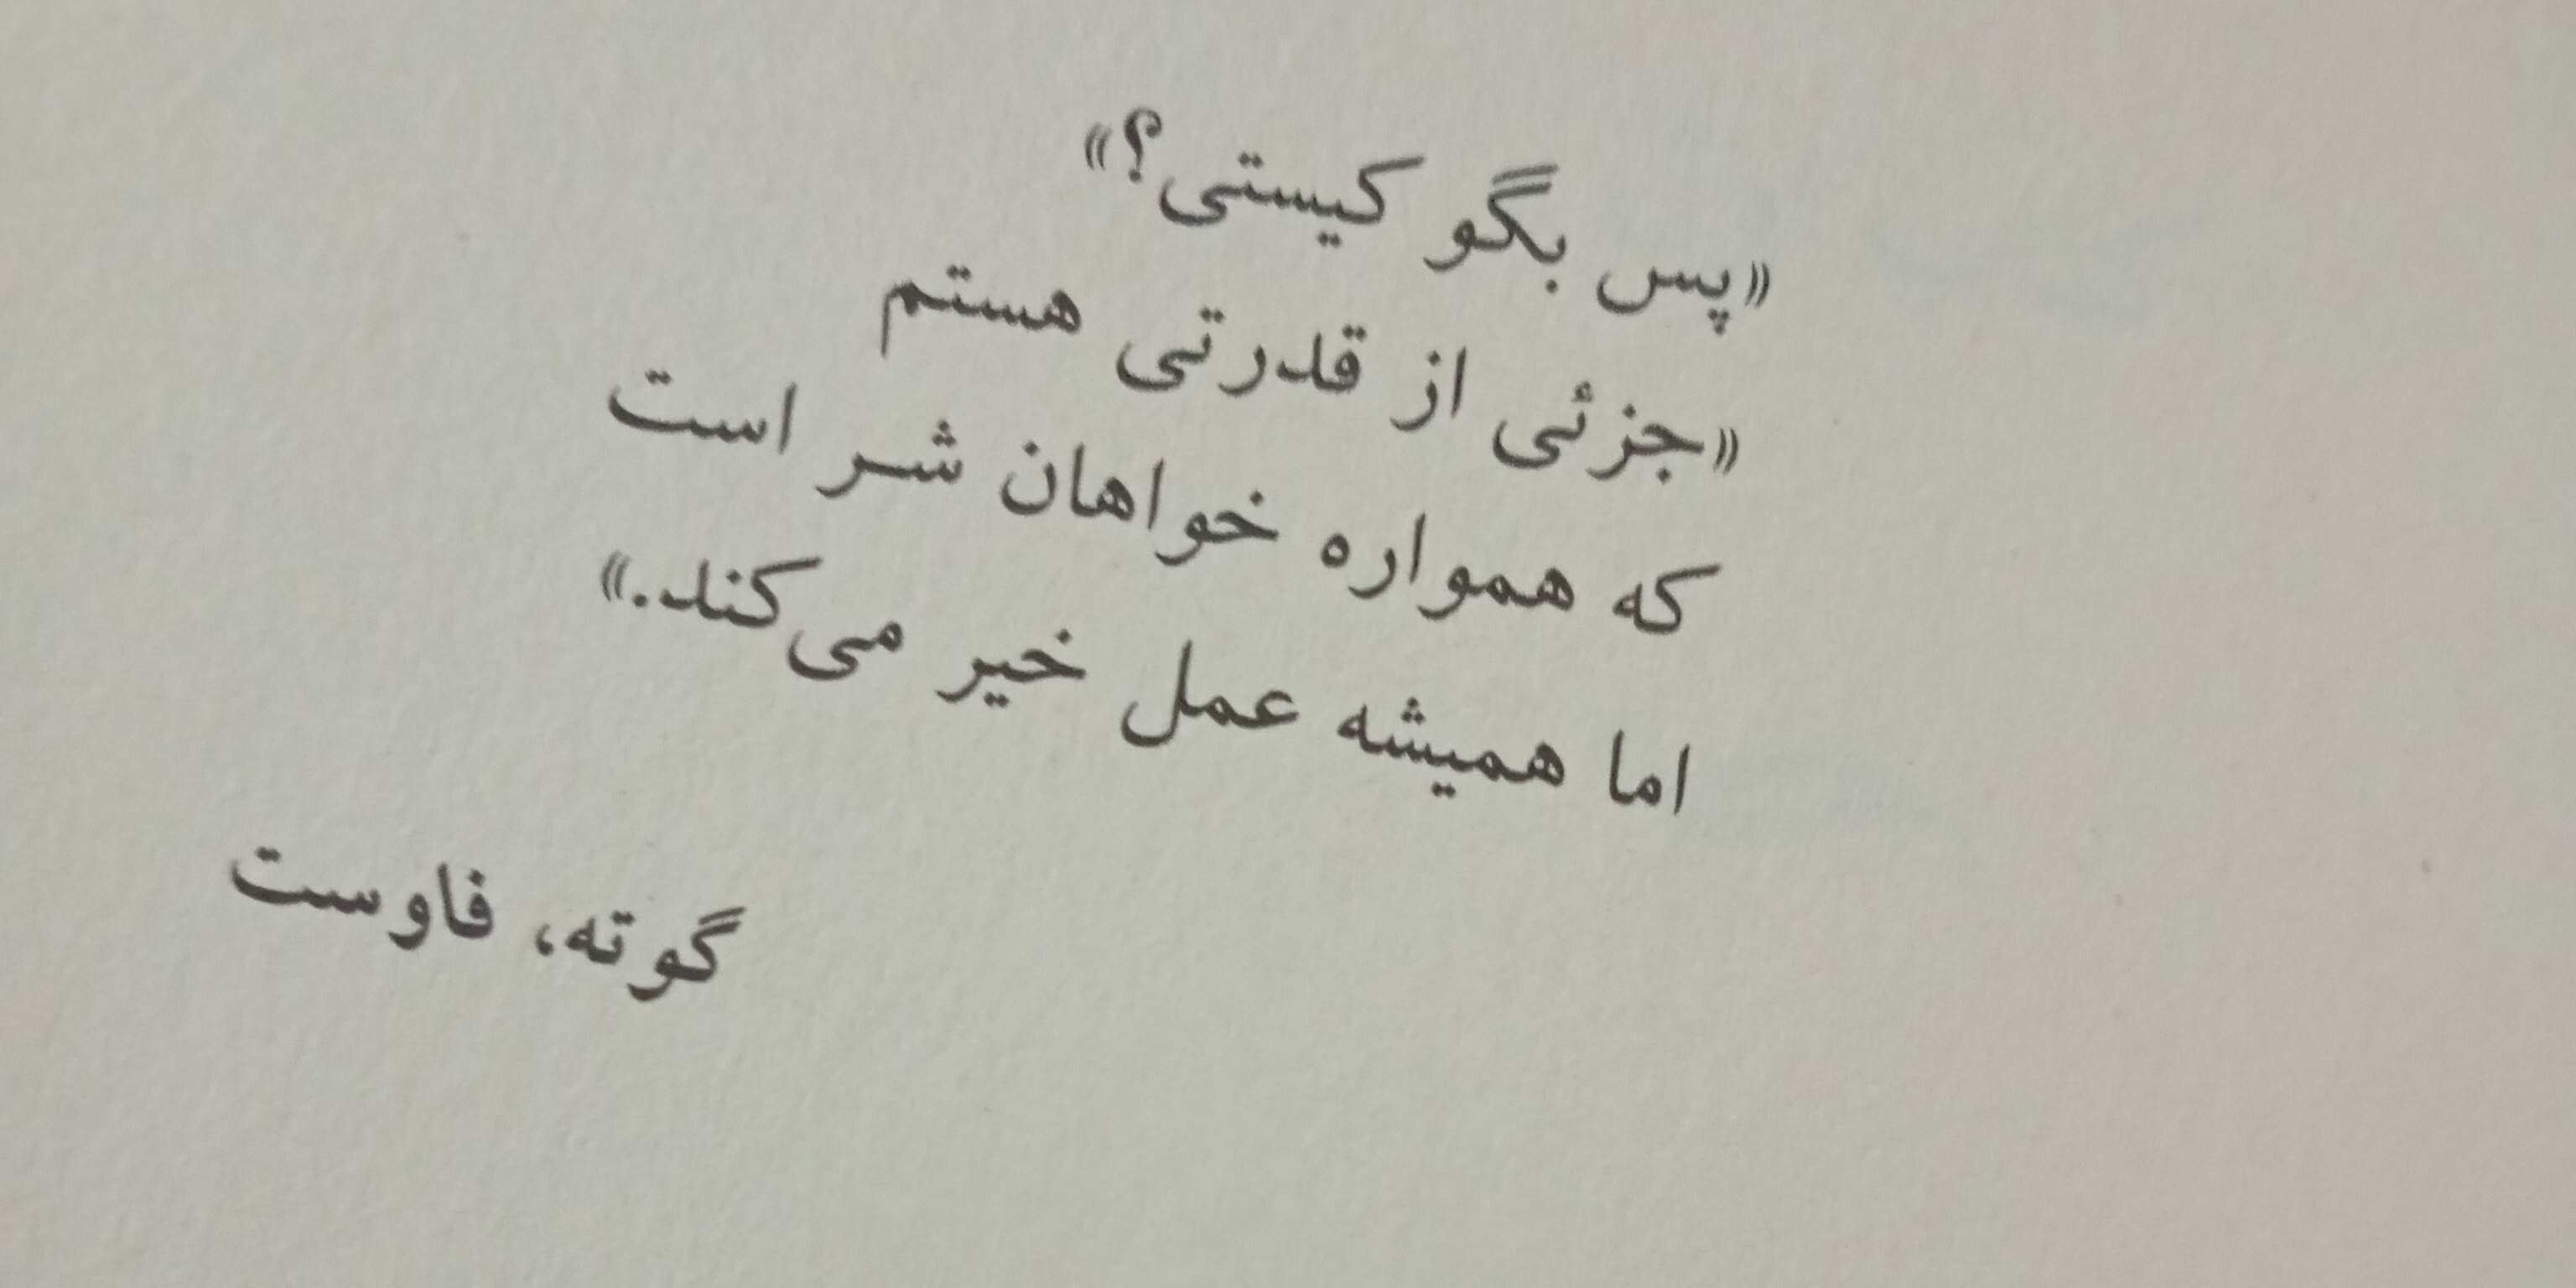 «پس بگو کیستی؟»
«جزئی از قدرتی هستم
که همواره خواهان شر است
اما همیشه عمل خیر می‌کند.»
گوته، فاوست